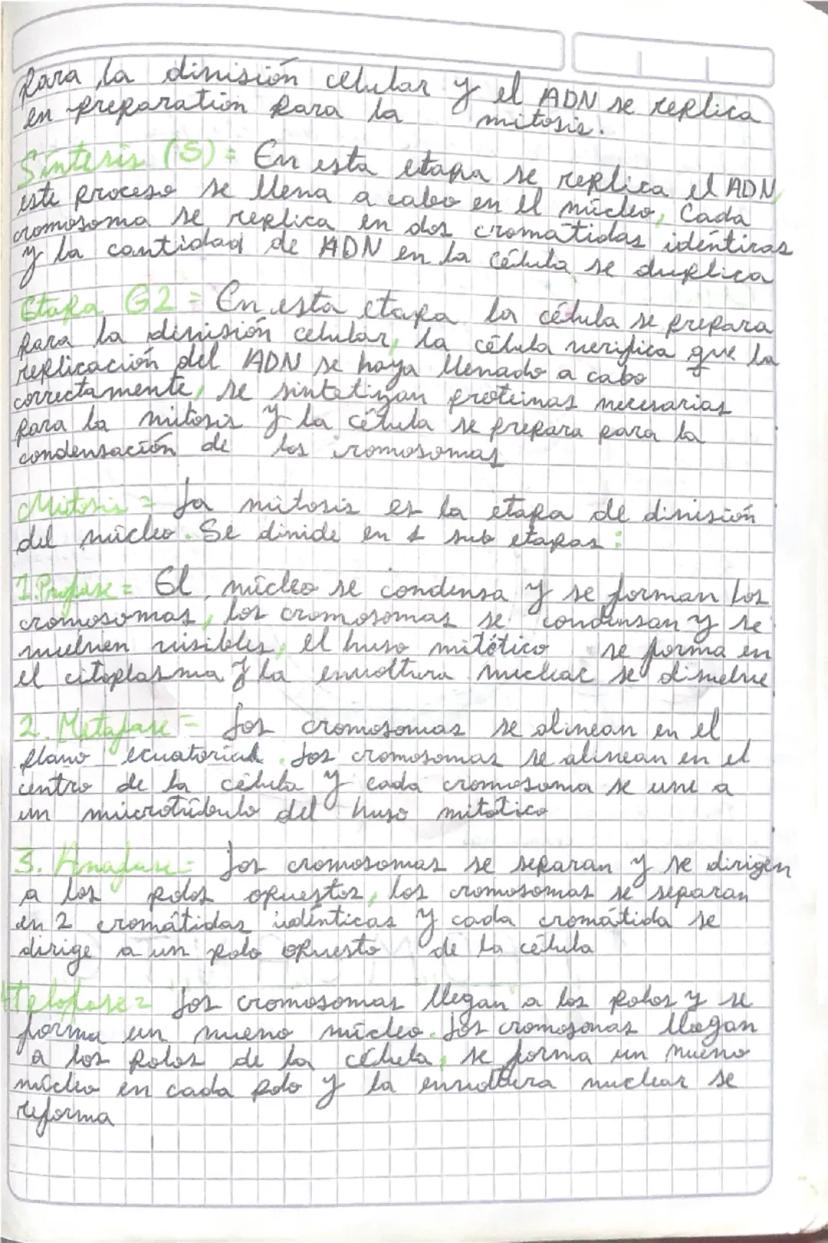 para la división celular y el ADN se replica
en preparation para la mitosis.
Síntesis (S) = En esta etapa se replica el ADN,
este proceso se lleva a cabo en el núcleo, Cada
cromosoma se replica en dos cromátidas idénticas
y la cantidad de ADN en la célula se duplica
Etapa G2 = En esta etapa la célula se prepara
para la división celular, la célula verifica que la
replicación del ADN se haya llevado a cabo
correctamente, se sintetizan proteinas necesarias
para la mitosis y la célula se prepara para la
condensación de los cromosomas
Mitosis = La mitosis es la etapa de división
del núcleo. Se divide en 4 sub etapas:
1. Profase = El núcleo se condensa y se forman los
cromosomas, los cromosomas se condensan y se
vuelven visibles, el huso mitótico se forma en
el citoplasma y la envoltura nuclear se disuelve
2. Metafase = Los cromosomas se alinean en el
plano ecuatorial. Los cromosomas se alinean en el
centro de la célula y cada cromosoma se une a
un microtúbulo del huso mitótico
3. Anafase = Los cromosomas se separan y se dirigen
a los polos opuestos, los cromosomas se separan
en 2 cromátidas idénticas y cada cromátida se
dirige a un polo opuesto de la célula
4 Telofase = Los cromosomas llegan a los polos y se
forma un nuevo núcleo. Los cromosomas llegan
a los polos de la célula, se forma un nuevo
núcleo en cada polo y la envoltura nuclear se
reforma